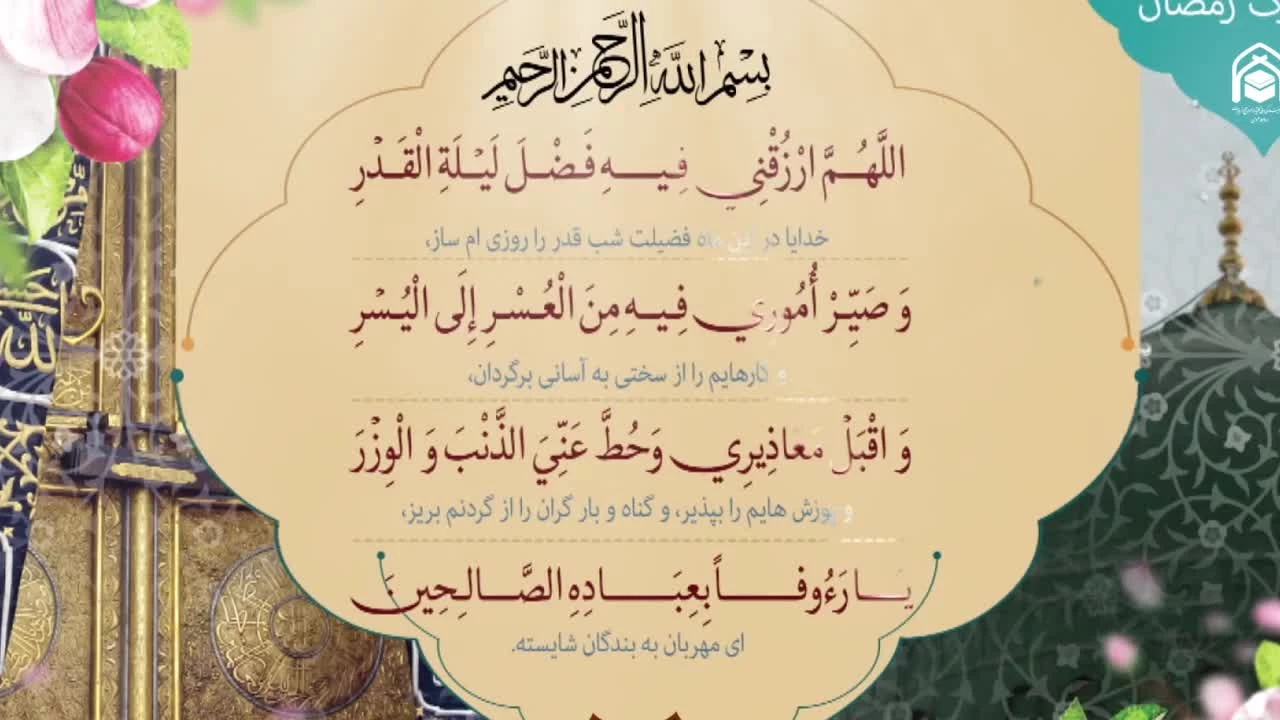 ک رمضان
بِسْمِ اللَّهِ الرَّحْمَنِ الرَّحِيمِ
اللَّهُمَّ ارْزُقْنِي فِيهِ فَضْلَ لَيْلَةِ الْقَدْرِ
خدایا در این ماه فضیلت شب قدر را روزی ام ساز،
وَ صَيِّرْ أُمُورِي فِيهِ مِنَ الْعُسْرِ إِلَى الْيُسْرِ
و کارهایم را از سختی به آسانی برگردان،
وَ اقْبَلْ مَعَاذِيرِي وَحُطَّ عَنِّيَ الذَّنْبَ وَ الْوِزْرَ
و پوزش هایم را بپذیر، و گناه و بار گران را از گردنم بریز،
يَا رَءُوفاً بِعِبَادِهِ الصَّالِحِينَ
ای مهربان به بندگان شایسته.